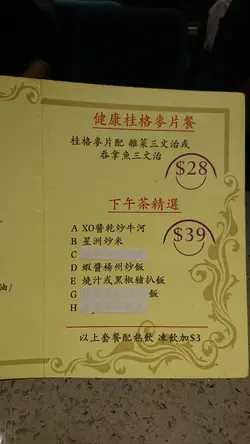 健康桂格麥片餐
桂格麥片配 雜菜三文治或
吞拿魚三文治
$28
下午茶精選
$39
A XO醬乾炒牛河
B 星洲炒米
C
D 蝦醬楊州炒飯
E 燒汁或黑椒豬扒飯
G 飯
H
以上套餐配熱飲 凍飲加$3
油/